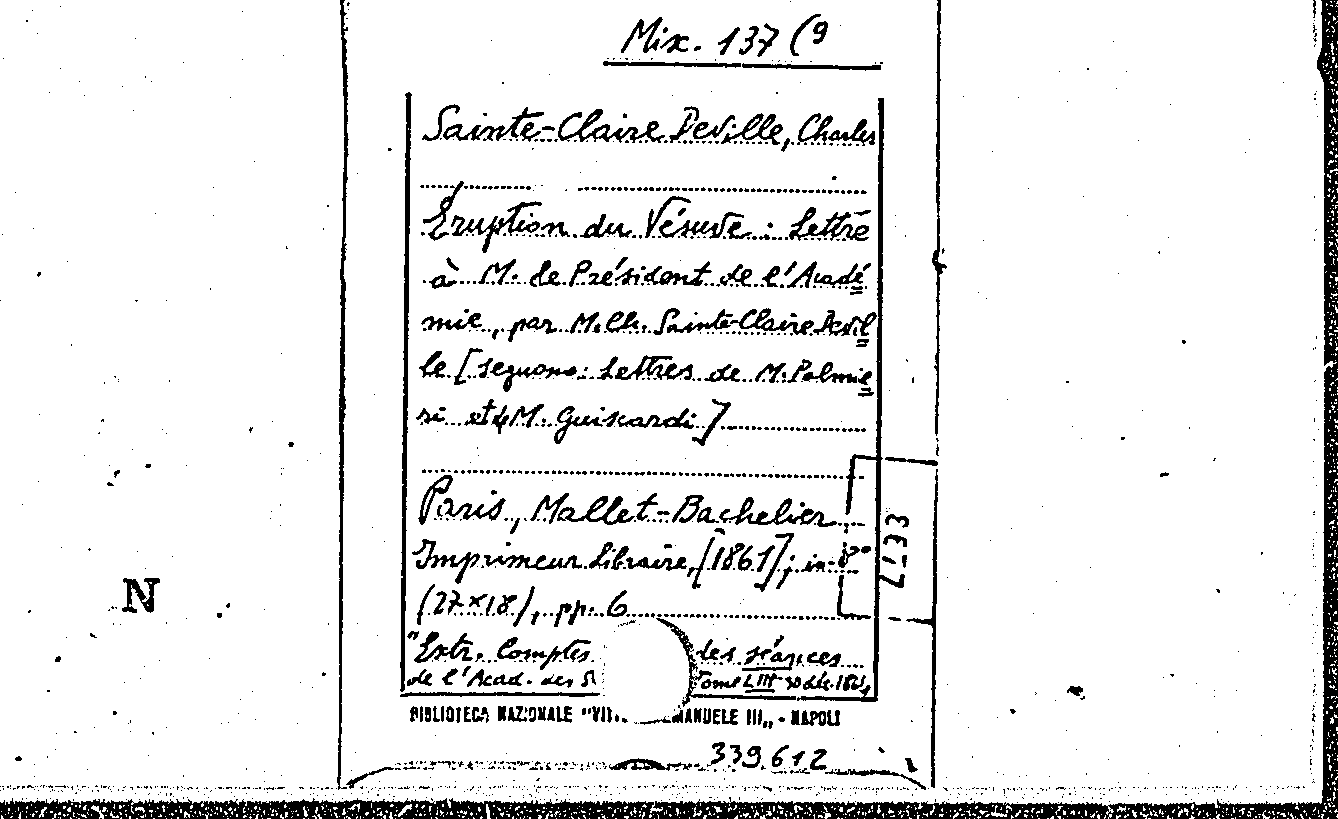 Mix. 137 (9
Sainte-Claire Deville, Charles
Éruption du Vésuve : Lettre
à M. le Président de l'Acadé
mie, par M. Ch. Sainte-Claire Devil
le [seguono: Lettres de M. Palmie
ri et de M. Guiscardi]
Paris, Mallet-Bachelier
Imprimeur Libraire, [1861]; in-8°
(27×18), pp. 6
"Extr. Comptes des séances
de l'Acad. des S Tome LIII 30 déc. 1861,
BIBLIOTECA NAZIONALE "VIT. EMANUELE III„ - NAPOLI
339612
N